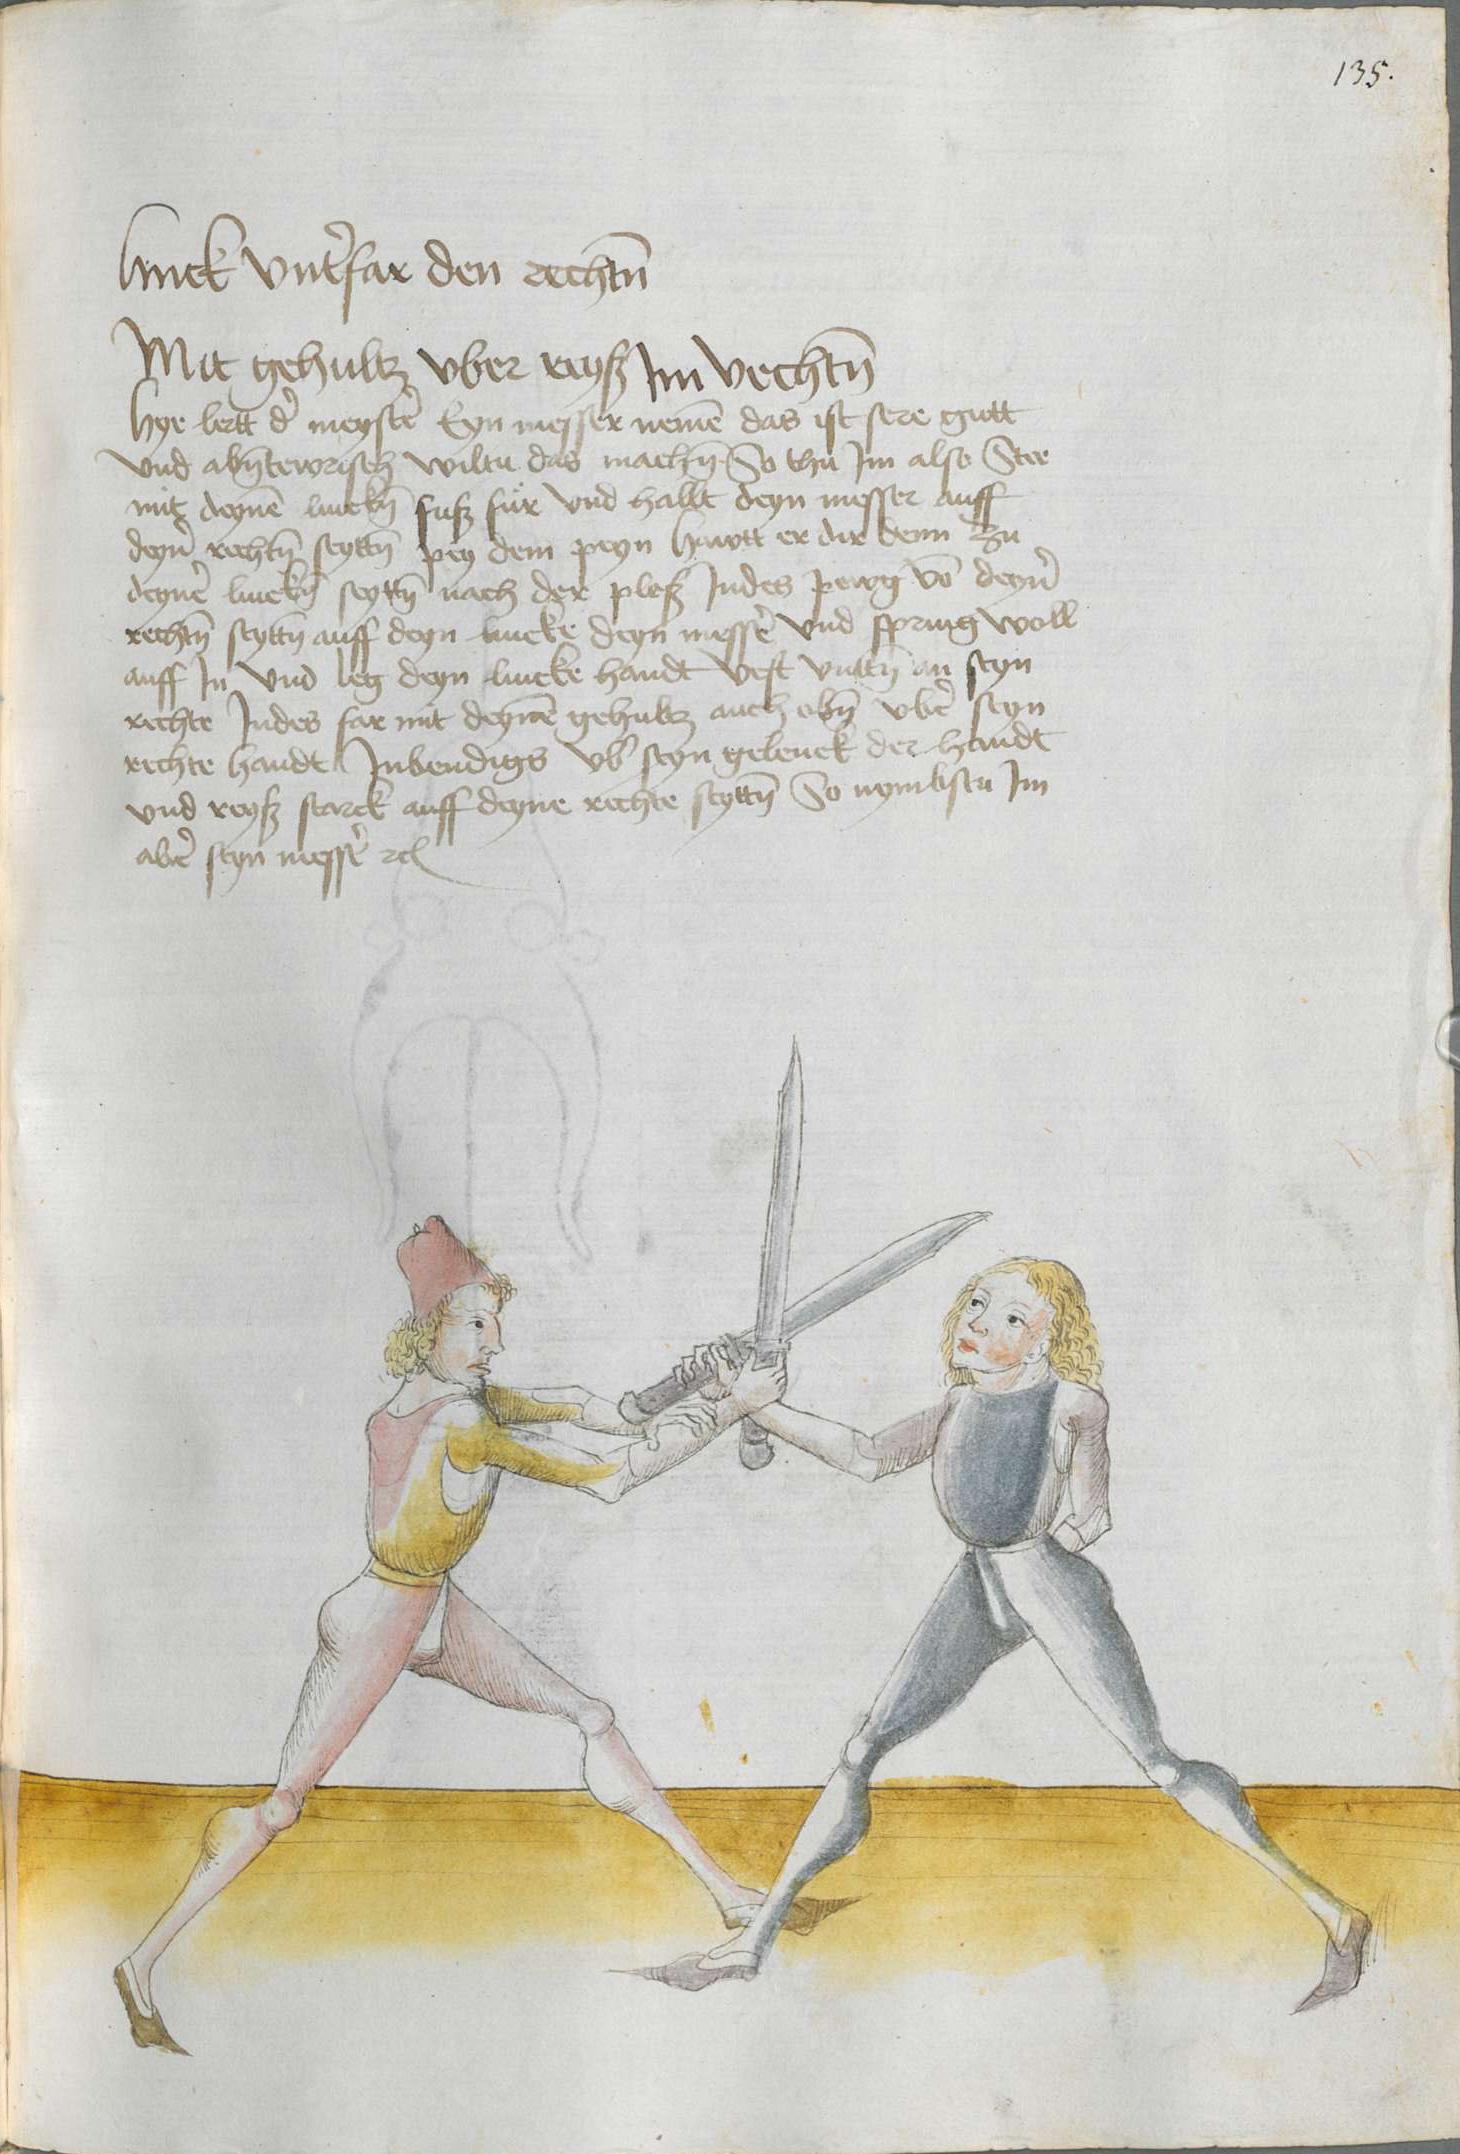 135.
linck vnterfar den rechtn̄
Mit gehultz vber reyß Im vechtn̄
Hye lertt d' meyster Eyn messer nemē das ist sere gutt
vnd abn̄tewrisch wiltu das machn̄ So thu Im also Stee
mit deynē linckn̄ fuß fur vnd hallt deyn messer auff
deyn' rechtn̄ seyttn̄ pey dem peyn hawtt er dir denn zu
deyner linckn̄ seyttn̄ nach der pleß Indes pewg vō deyn'
rechtn̄ seyttn̄ auff deyn lincke deyn messer vnd spring woll
auff In vnd leg deyn lincke handt vest vnttn̄ an seyn
rechte Indes far mit deynē gehultz auch obn̄ vber seyn
rechte handt Inbendigs vb' seyn gelenck der handt
vnd reyß starck auff deyne rechte seyttn̄ So nymbstu Im
aber seyn messer rc